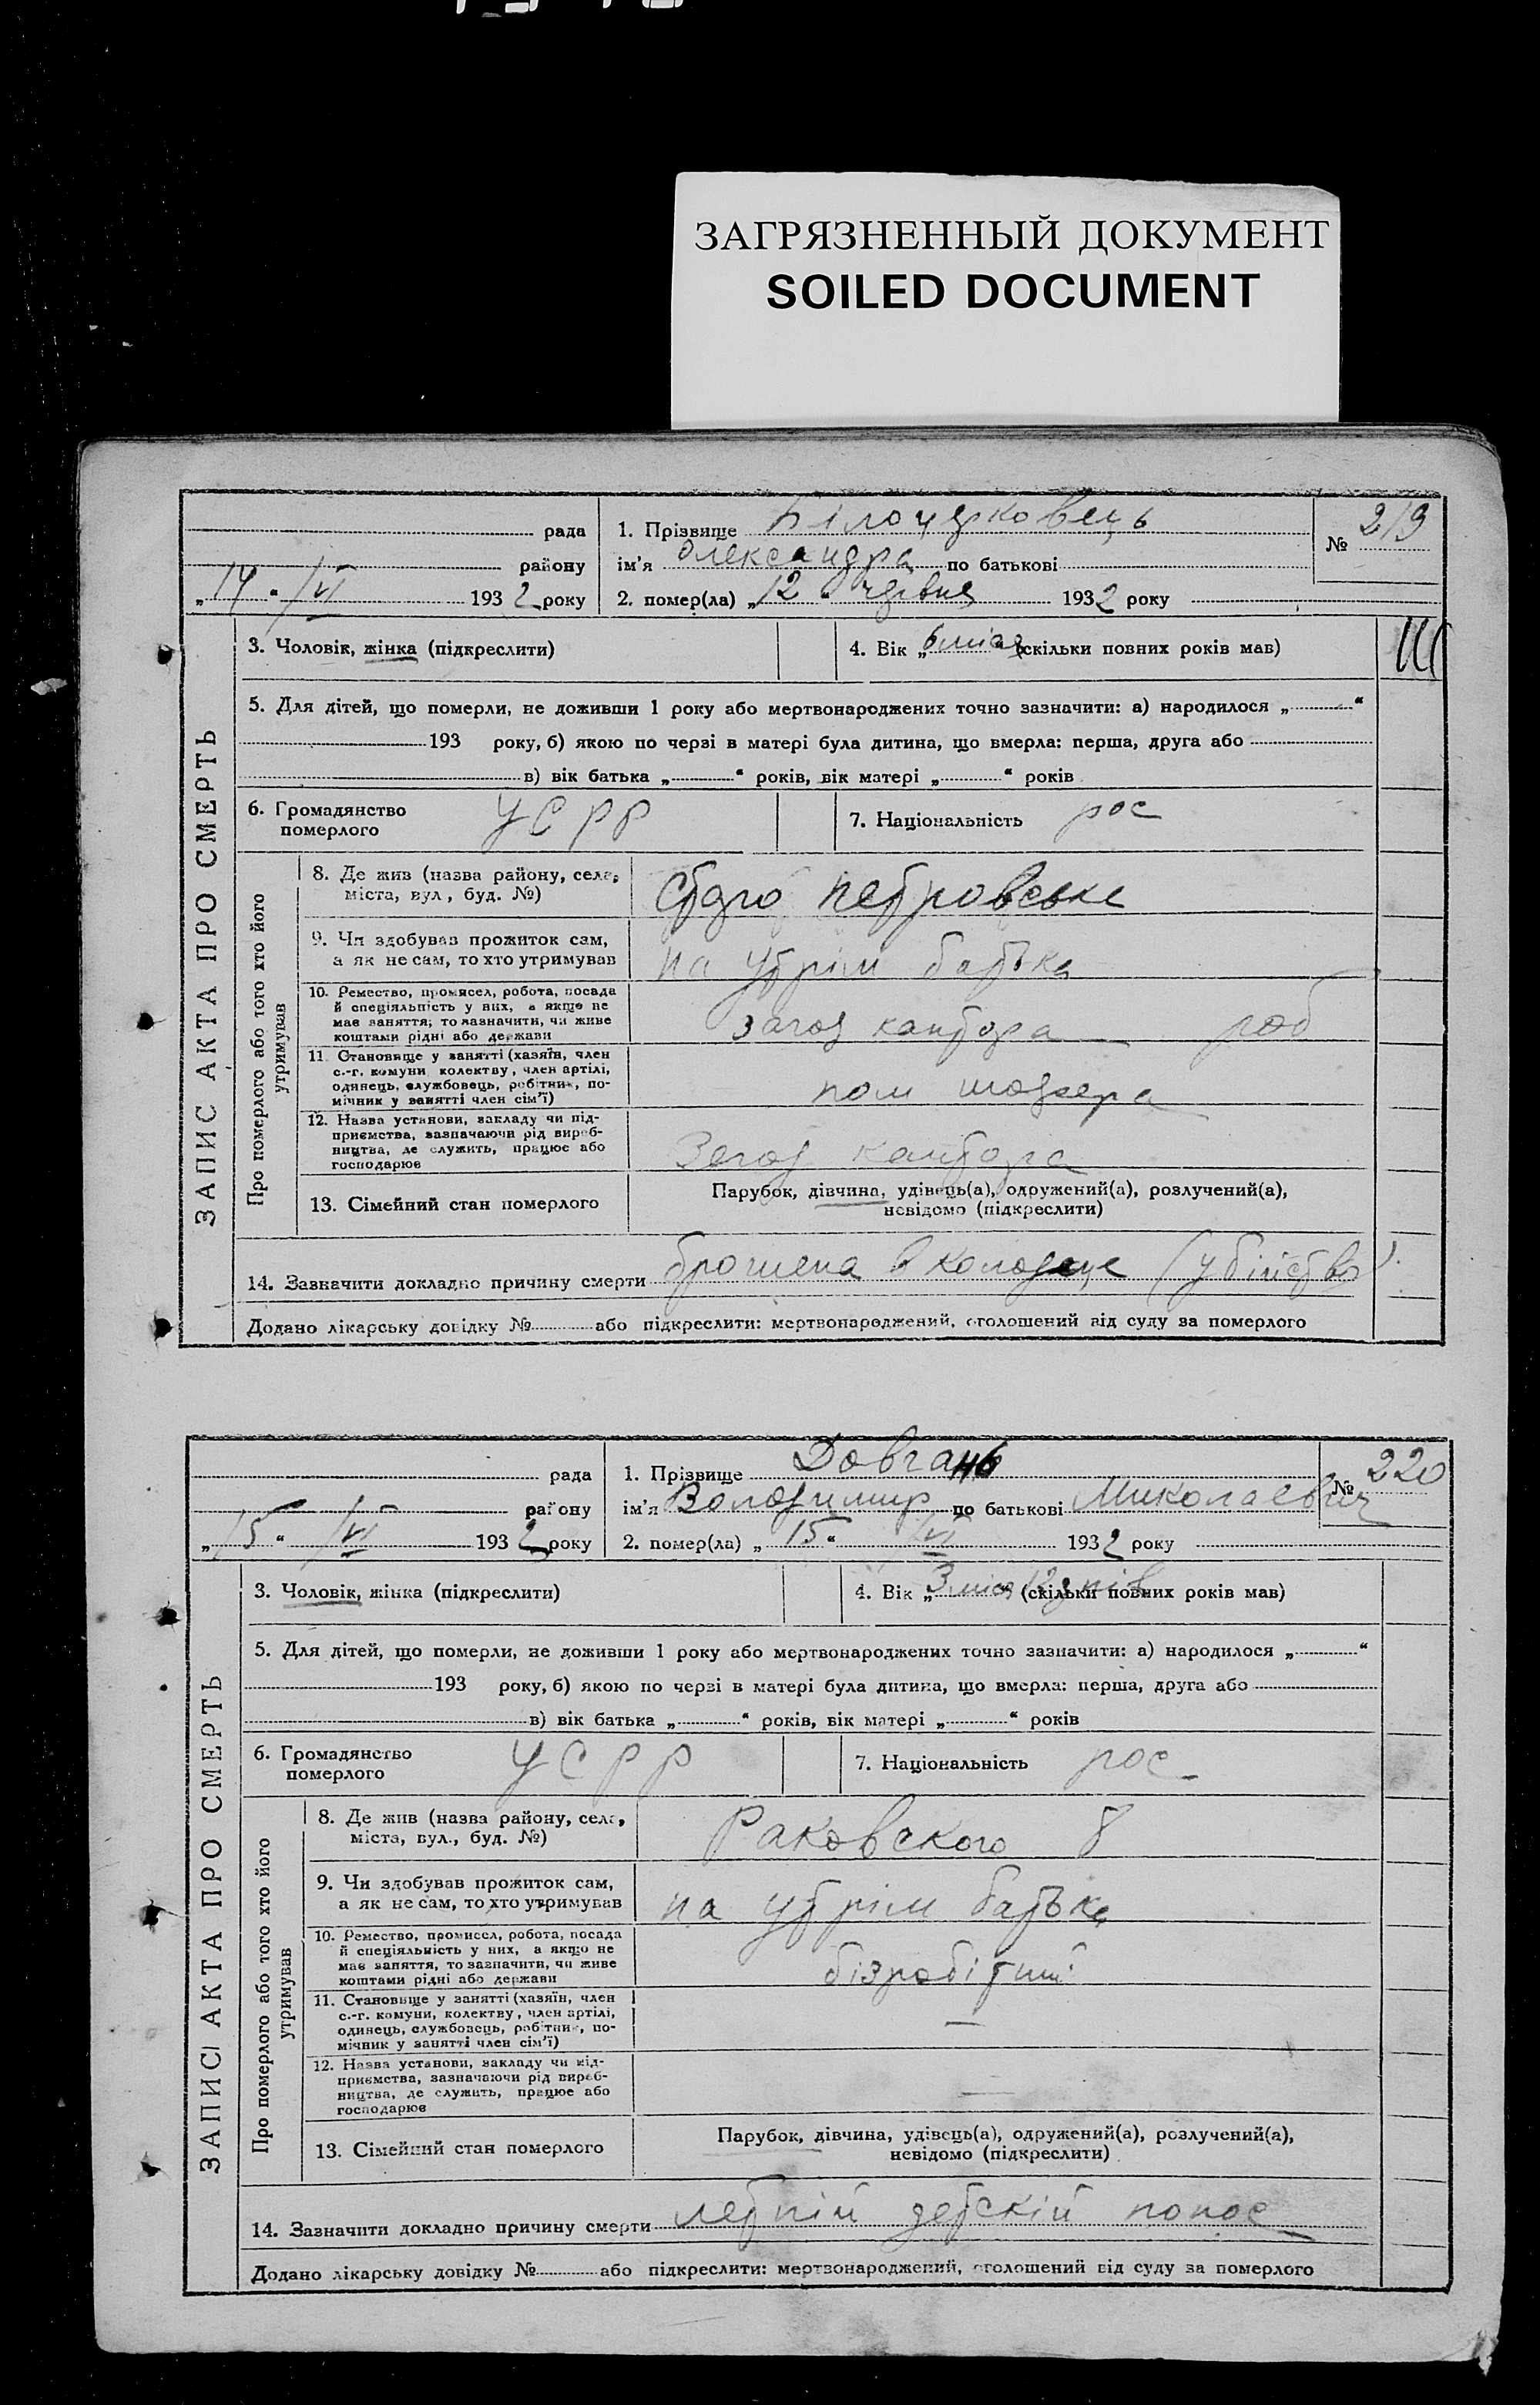 ЗАГРЯЗНЕННЫЙ ДОКУМЕНТ
SOILED DOCUMENT
рада 1. Прізвище Білоцерковець № 219
району ім'я Олександра по батькові
„14“ /VI 1932 року 2. помер(ла) „12“ червня 1932 року
ЗАПИС АКТА ПРО СМЕРТЬ
3. Чоловік, жінка (підкреслити) 4. Вік „6 міся (скільки повних років мав)
5. Для дітей, що померли, не доживши 1 року або мертвонароджених точно зазначити: а) народилося „ “
193 року, б) якою по черзі в матері була дитина, що вмерла: перша, друга або
в) вік батька „ “ років, вік матері „ “ років
6. Громадянство померлого УСРР 7. Національність рос
Про померлого або того хто його утримував
8. Де жив (назва району, села,
міста, вул, буд. №) Старо Петровське
9. Чи здобував прожиток сам,
а як не сам, то хто утримував на утрім батька
10. Ремество, промисел, робота, посада
й спеціяльність у них, а якщо не
має заняття, то зазначити, чи живе
коштами рідні або держави
загот контора роб
11. Становище у занятті (хазяїн, член
с.-г. комуни колектву, член артілі,
одинець, службовець, робітник, по-
мічник у занятті член сім'ї)
пом
12. Назва установи, закладу чи під-
приємства, зазначаючи рід вироб-
ництва, де служить, працює або
господарює
Загот контора
13. Сімейний стан померлого Парубок, дівчина, удівець(а), одружений(а), розлучений(а),
невідомо (підкреслити)
14. Зазначити докладно причину смерти брошена в колодец (убійство)
Додано лікарську довідку № або підкреслити: мертвонароджений, оголошений від суду за померлого
рада 1. Прізвище Довгань № 220
району ім'я Володимир по батькові Миколаевич
„15“ /VI 1932 року 2. помер(ла) „15“ /VI 1932 року
ЗАПИС АКТА ПРО СМЕРТЬ
3. Чоловік, жінка (підкреслити) 4. Вік „3 міся 12 днів (скільки повних років мав)
5. Для дітей, що померли, не доживши 1 року або мертвонароджених точно зазначити: а) народилося „ “
193 року, б) якою по черзі в матері була дитина, що вмерла: перша, друга або
в) вік батька „ “ років, вік матері „ “ років
6. Громадянство померлого УСРР 7. Національність рос
Про померлого або того хто його утримував
8. Де жив (назва району, села,
міста, вул., буд. №) Раковского 8
9. Чи здобував прожиток сам,
а як не сам, то хто утримував на утрім батька
10. Ремество, промисел, робота, посада
й спеціяльність у них, а якщо не
має заняття, то зазначити, чи живе
коштами рідні або держави
11. Становище у занятті (хазяїн, член
с.-г. комуни, колектву, член артілі,
одинець, службовець, робітник, по-
мічник у занятті член сім'ї)
12. Назва установи, закладу чи під-
приємства, зазначаючи рід вироб-
ництва, де служить, працює або
господарює
13. Сімейний стан померлого Парубок, дівчина, удівець(а), одружений(а), розлучений(а),
невідомо (підкреслити)
14. Зазначити докладно причину смерти летній детскій понос
Додано лікарську довідку № або підкреслити: мертвонароджений, оголошений від суду за померлого